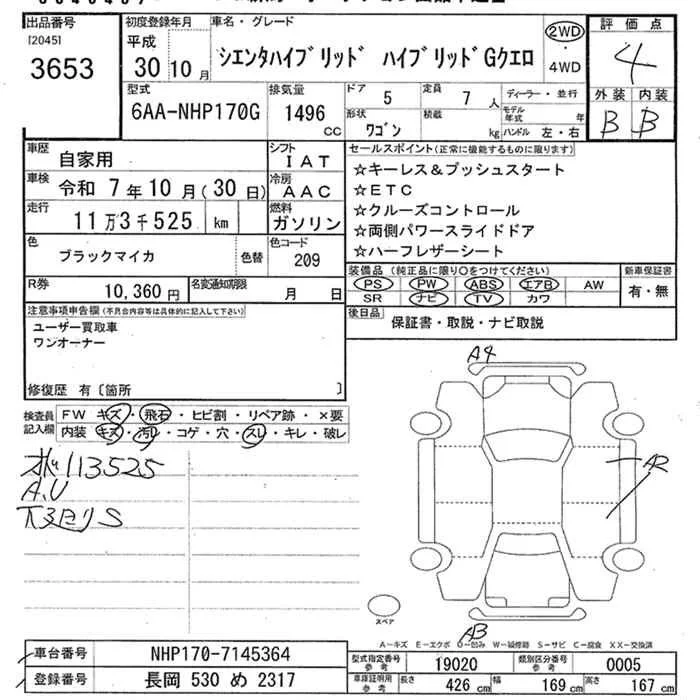 出品番号
[2045]
3653
初度登録年月
平成
30 10 月
車名・グレード
シエンタハイブリッド ハイブリッドGクエロ
2WD
・
4WD
評価点
4
外装 内装
B B
型式
6AA-NHP170G
排気量
1496
CC
ドア
5
定員
7 人
ディーラー・並行
形状
ワゴン
積載
kg
モデル年式
年
ハンドル 左・右
車歴
自家用
シフト
IAT
車検
令和 7年 10月(30日)
冷房
AAC
走行
11万3千525 km
燃料
ガソリン
色
ブラックマイカ
色替
色コード
209
R券
10,360 円
名変通知期限
月 日
セールスポイント(正常に機能するものに限ります)
☆キーレス&プッシュスタート
☆ETC
☆クルーズコントロール
☆両側パワースライドドア
☆ハーフレザーシート
装備品 (純正品に限り〇をつけてください)
PS PW ABS エアB AW
SR ナビ TV カワ
新車保証書
有・無
後日品
保証書・取説・ナビ取説
注意事項申告欄(不具合内容等は具体的に記入して下さい)
ユーザー買取車
ワンオーナー
修復歴 有〔箇所 〕
検査員
記入欄
FW キズ・飛石・ヒビ割・リペア跡・×要
内装 キズ・汚レ・コゲ・穴・スレ・キレ・破レ
113525
A.U
A4
A2
A3
スペア
A-キズ E-エクボ U-凹み W-補修跡 S-サビ C-腐食 XX-交換済
車台番号
NHP170-7145364
登録番号
長岡 530 め 2317
型式指定番号
参考
19020
類別区分番号
参考
0005
車庫証明用
参考
長さ
426 cm
幅
169 cm
高さ
167 cm